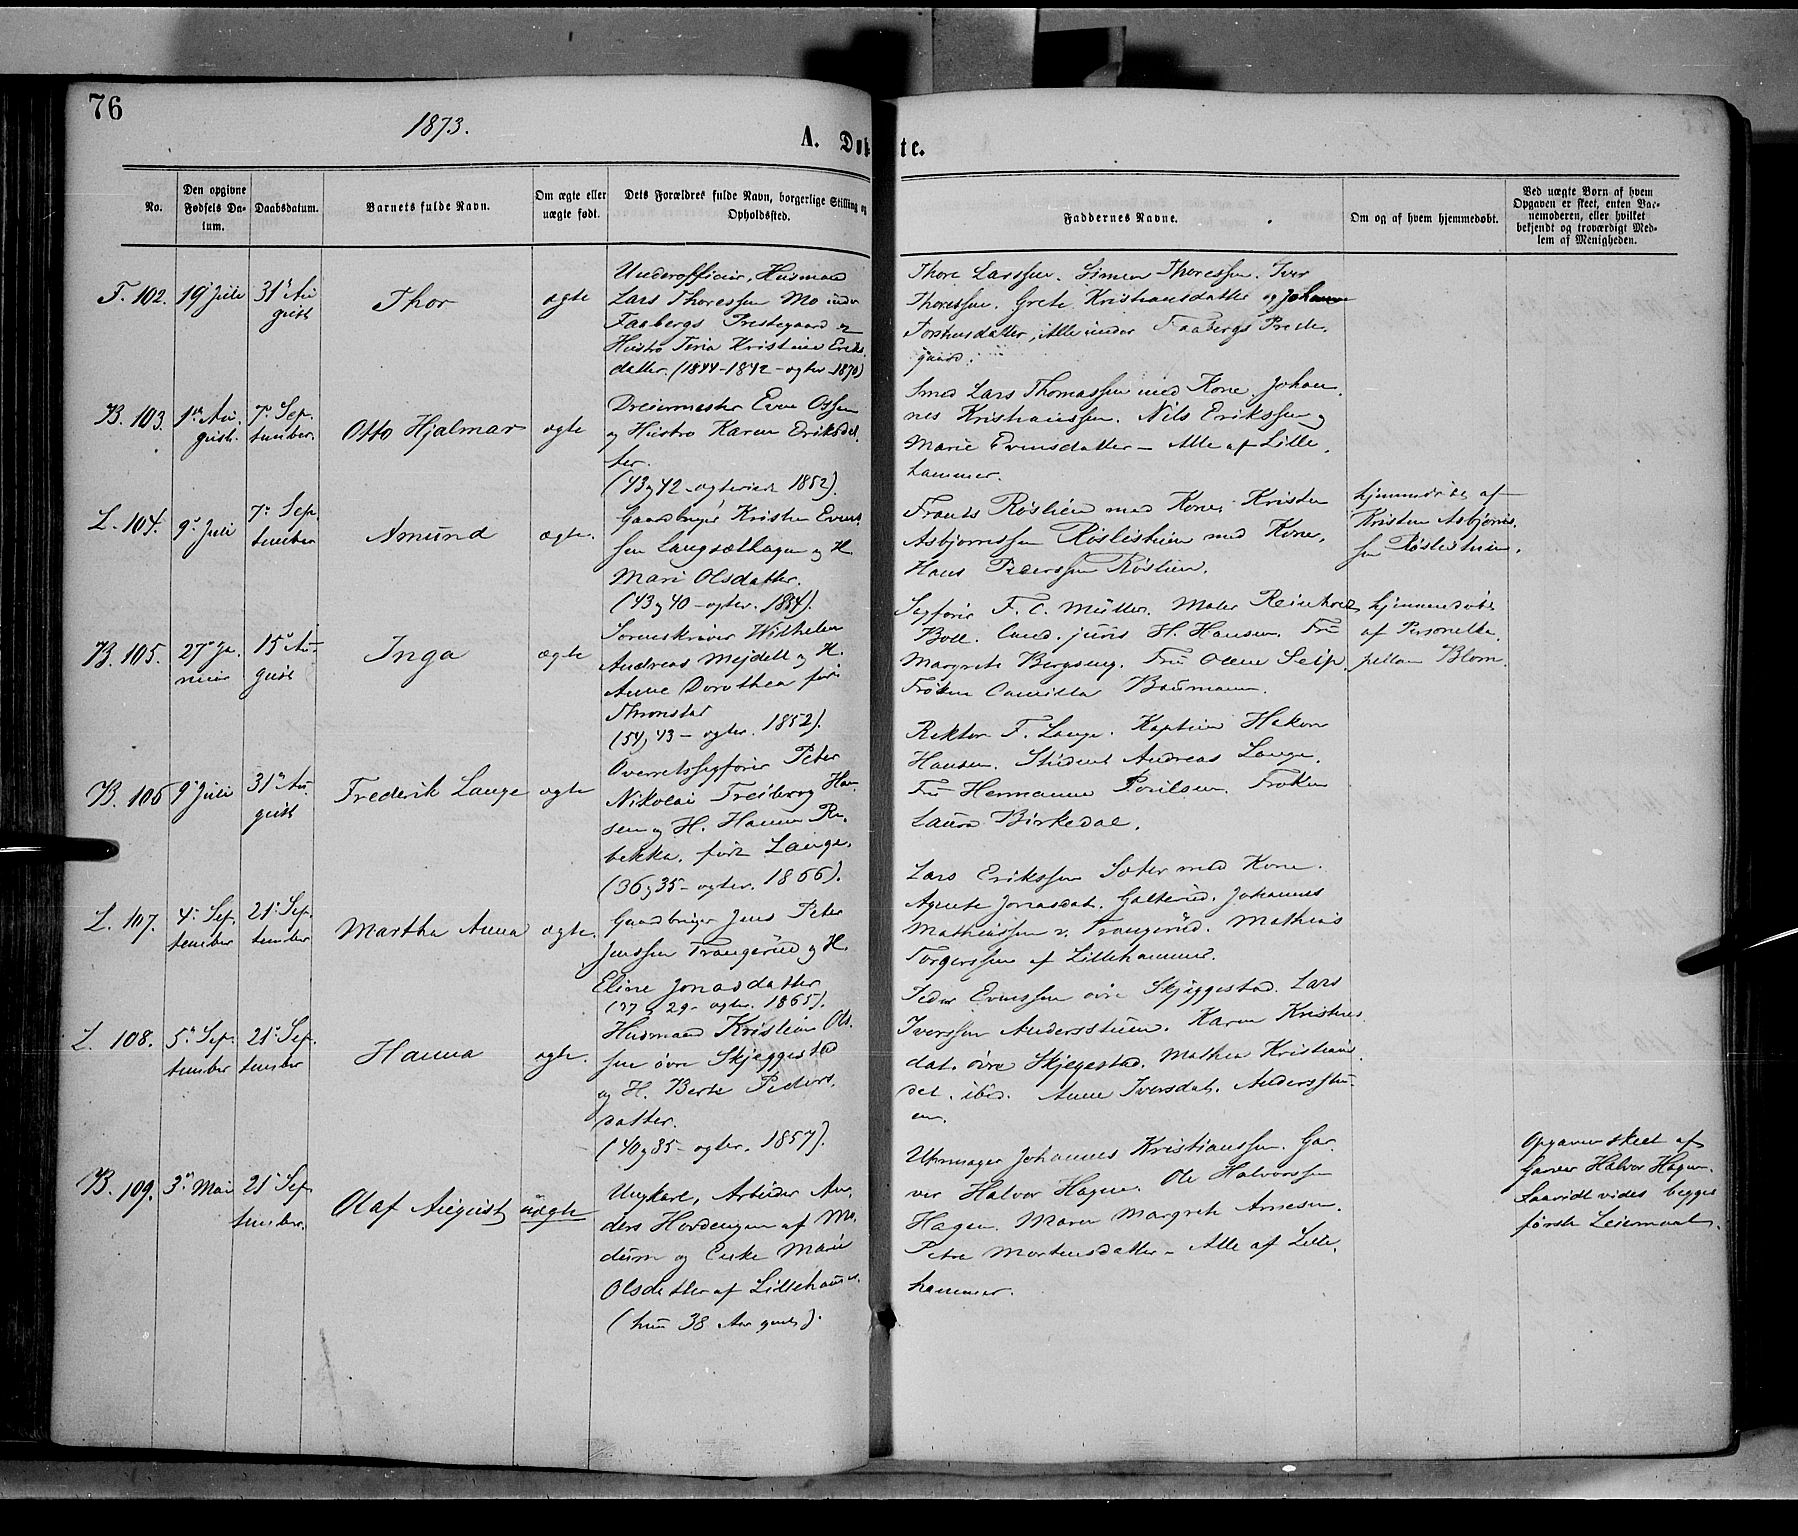 76
1873.
A. Døbte.
No.
Den opgivne Fødsels Datum.
Daabsdatum.
Barnets fulde Navn.
Om ægte eller uægte født.
Dets Forældres fulde Navn, borgerlige Stilling og Opholdssted.
Faddernes Navne.
Om og af hvem hjemmedøbt.
Ved uægte Børn af hvem Opgaven er skeet, enten Barnemoderen, eller hvilket bekjendt og troværdigt Medlem af Menigheden.
F. 102. 19 Juli 31te August Thor ægte
Underofficier, Husmand
Lars Thoressen Mo under
Faabergs Prestegaard og
Hustro Kristine Eriks
datter. (1844-1842 - 1870)
Thore Larssen. Simen Thoressen. Iver
Thoressen. Grete Kristiansdatter og Johanne
Alle under Faabergs Preste
gaard.
B. 103. 1te August. 7de September. Otto Hjalmar ægte
Dreiermester Even Olssen
og Hustro Karen Eriksdat
ter.
(43 og 42 - 1852).
Smed Lars Thomassen med Kone, Johan
nes Kristianssen. Nils Erikssen og
Marie Evensdatter - Alle af Lille
hammer.
L. 104. 9de Juli 7de September Amund ægte.
Gaardbruger Kristen Evens
sen Langsæthagen og H.
Mari Olsdatter.
(43 og 40 - 1854).
Frants Røslien med Kone, Kristen
Asbjørnssen Røslistuen med Kone,
Hans Pederssen Røslien.
hjemmedøbt af
Kristen Asbjørns
sen Røslistuen.
B. 105. 27de Januar 15de August Inga ægte
Sorenskriver Wilhelm
Andreas Mejdell og H.
Anne Dorothea født
Thronstad
(54 og 43 - 1852).
Sagfører F. C. Müller. Maler Reinholdt
Boll. Cand. juris H. Hansen. Fru
Margrete Bergseng. Fru Olene Seip.
Frøken Camilla Baumann.
hjemmedøbt
af Personelka
pellan Blom.
B. 106 9de Juli 31te August Frederik Lange ægte
Overretssagfører Peter
Nikolai Treiborg Han
sen og H. Hanna Re
bekka, født Lange.
(36 og 35 - 1866).
Rektor F. Lange. Kaptein Hakon
Hansen. Student Andreas Lange.
Fru Hermanne Poulsen. Frøken
Laura Birkedal.
L. 107. 4de September 21de September Martha Anna ægte.
Gaardbruger Jens Peter
Jenssen Trangerud og H.
Eline Jonasdatter
(37 og 29 - 1865).
Lars Erikssen Sæter med Kone.
Agnete Jonasdat. Galterud. Johannes
Mathiassen Trangerud. Mathias
Torgerssen af Lillehammer.
L. 108. 5te September 21de September Hanna ægte.
Husmand Kristian Ol
sen øvre Skjeggestad
og H. Berte Peders
datter.
(40 og 35 - 1857).
Peder Evenssen øvre Skjeggestad. Lars
Iverssen Andersstuen. Karen Kristens
dat. øvre Skjeggestad. Mathea Kristians
dat. ibid. Anne Iversdat. Andersstu
en.
B. 109. 3die Mai 21de September. Olaf August uægte
Ungkarl, Arbeider An
ders Hordengen af Mo
dum og Enke Marie
Olsdatter af Lillehammer
(hun 38 Aar gml.).
Urmager Johannes Kristianssen. Gar
ver Halvor Hagen. Ole Halvorssen
Hagen. Maren Margrete Arnesen.
Petra Mortensdatter - Alle af Lille
hammer.
Opgaven skeet af
Garver Halvor Hagen.
Saavidt vides begges
første Leiermaal.